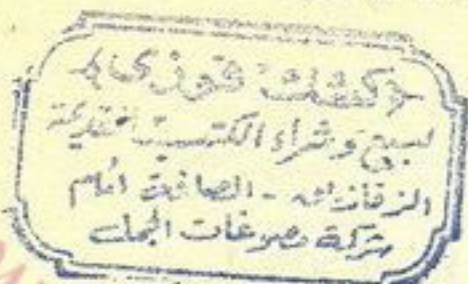 ﴿كشك فوزى﴾
لبيع وشراء الكتب القديمة
الزقازيق - الصاغة أمام
شركة مصوغات الجمل